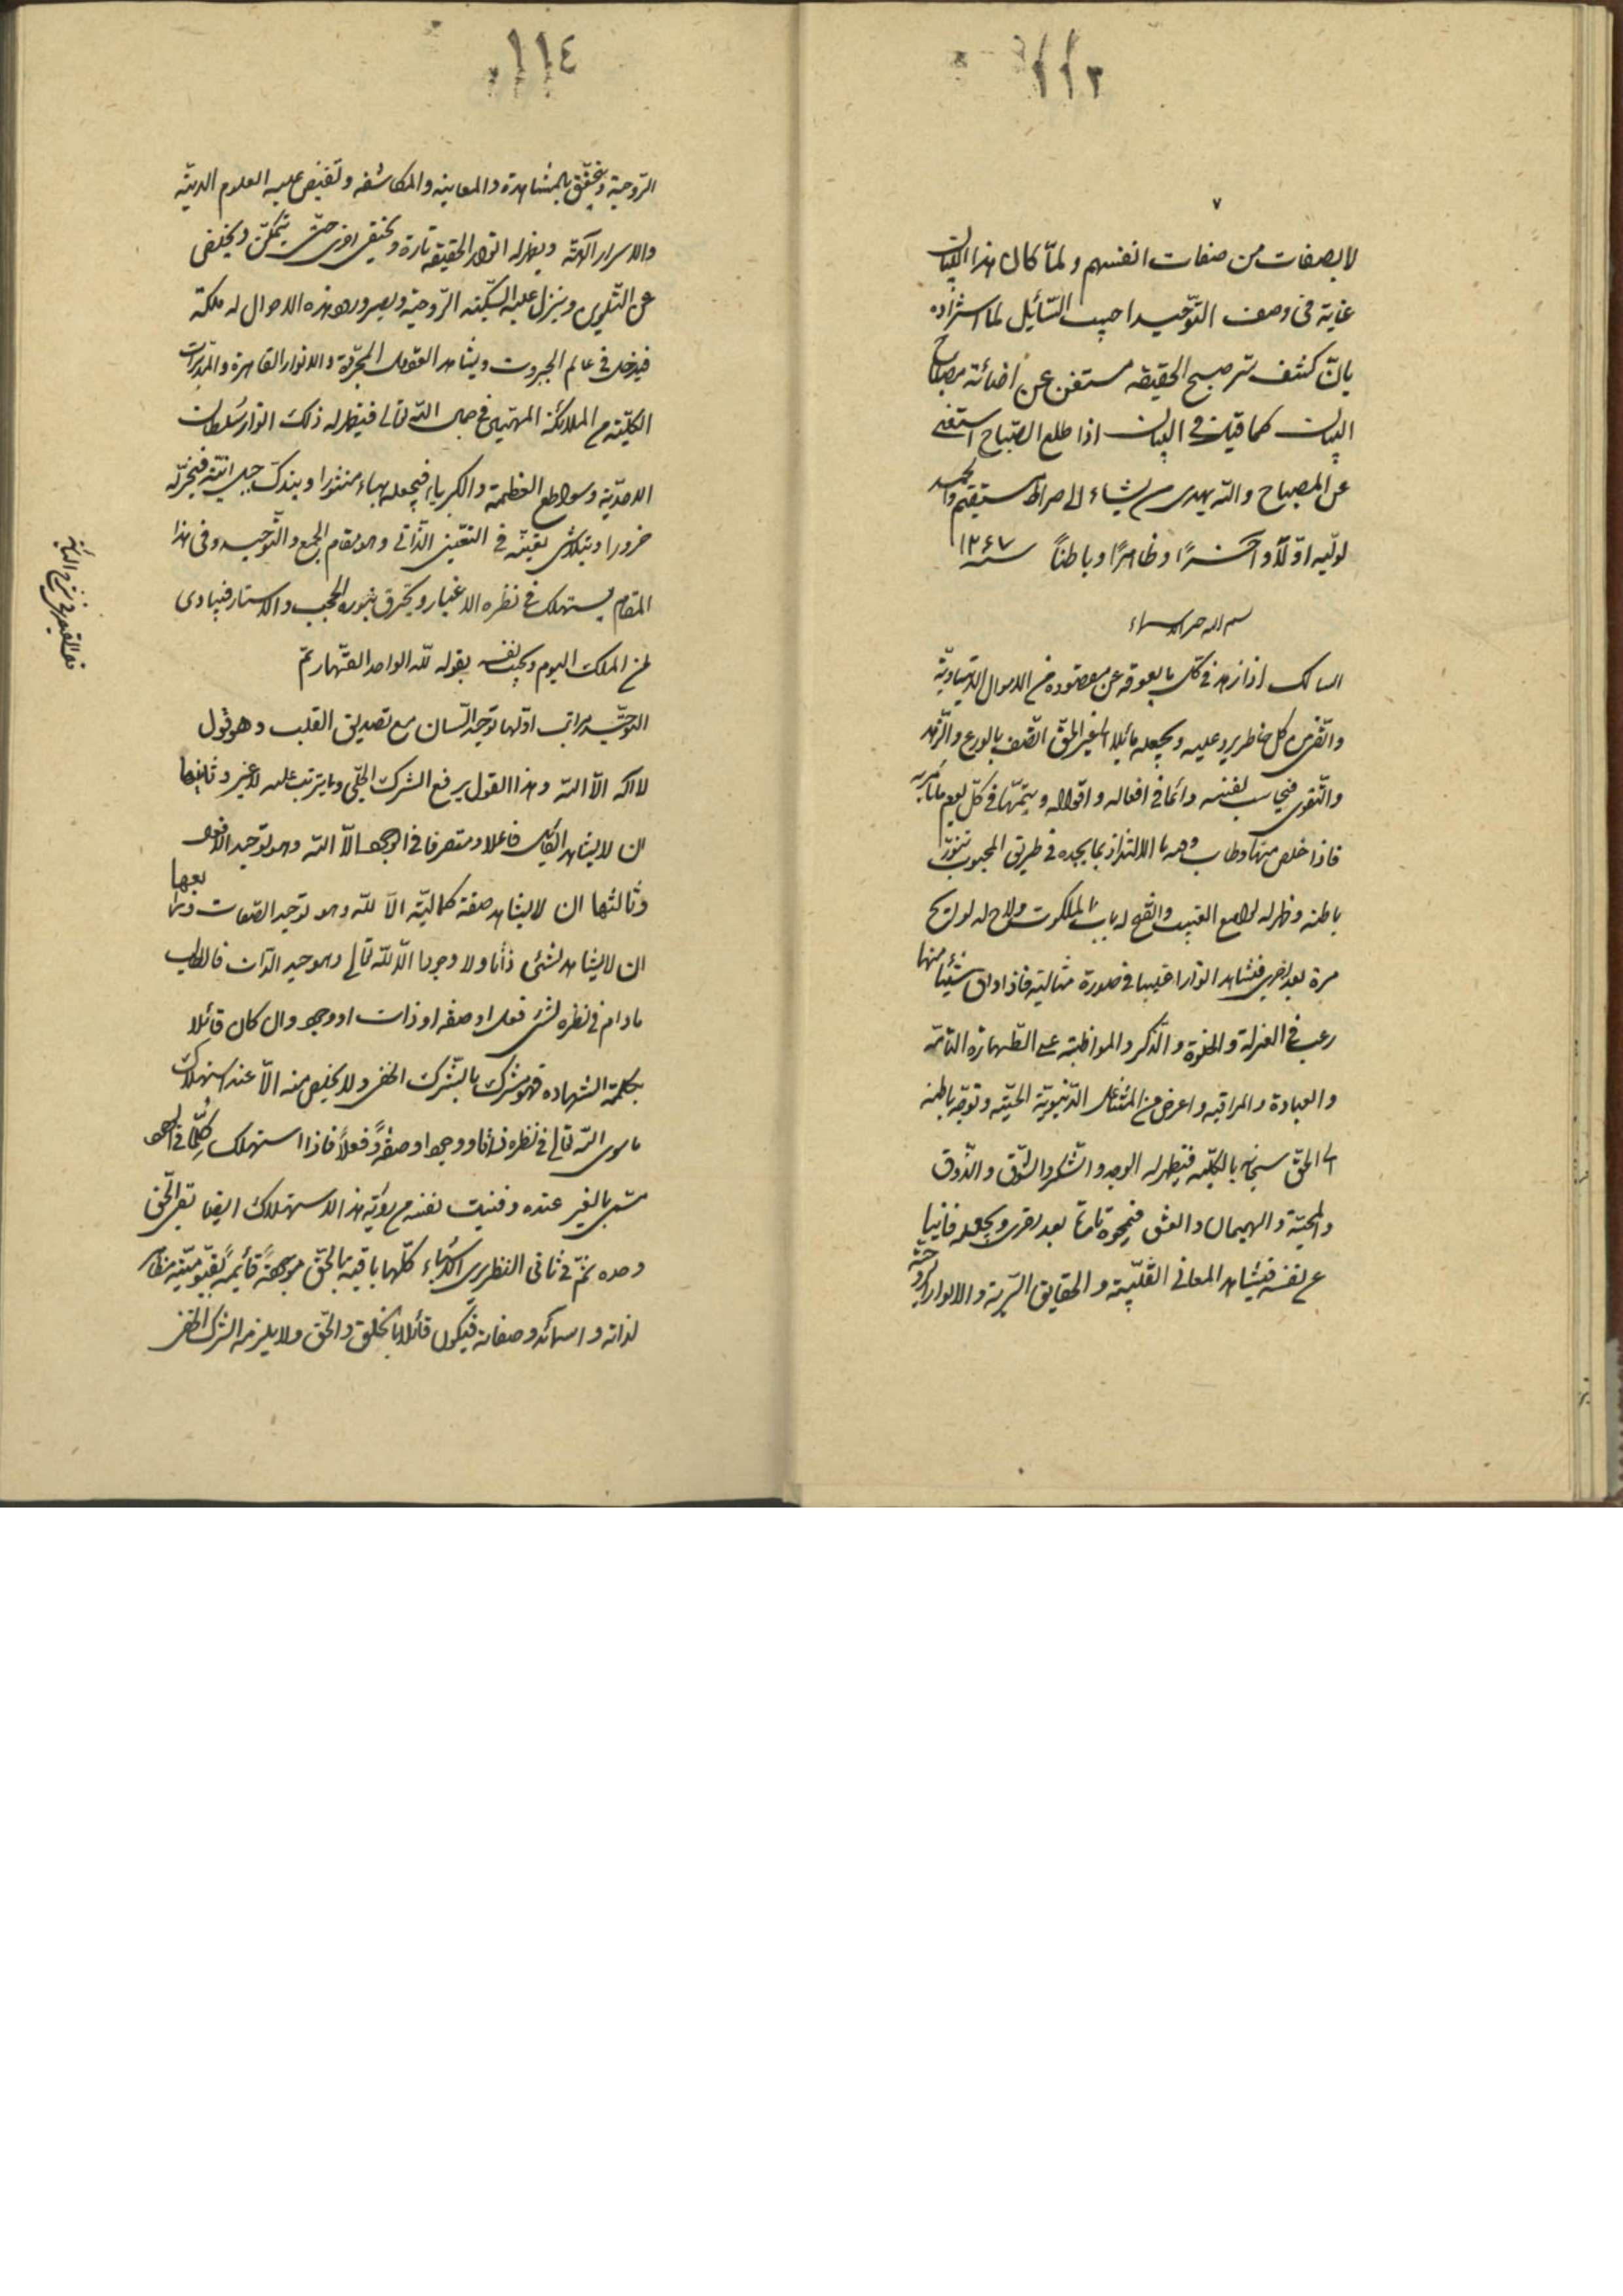 ١١٣
٧
لا بصفات من صفات انفسهم و لمّا كان هذا البيان
غاية فى وصف التّوحيد اجيب السّائل لما استزاده
بانّ كشف سرّ صبح الحقيقه مستغن عن اضائة مصباح
البيان كما قيل فى البيان اذا طلع الصّباح استغنى
عن المصباح و الله يهدى من يشاء الى صراط مستقيم و الحمد
لوليّه اوّلاً و آخراً و ظاهراً و باطناً سنه ١٢٤٧
بسم الله الرحمن الرحيم
السالك اذا زهد فى كلّ ما يعوقه عن مقصوده من الاموال الدنياويّة
و اتّقى من كلّ خاطر يرد عليه و يجعله مائلا الى غير الحقّ اتّصف بالورع و الزّهد
و التّقوى فيحاسب نفسه دائما فى افعاله و اقواله و يتّهمها فى كلّ يوم ما تأمر به
فاذا خلص منها و طاب وقته بالالتذاذ بما يجده فى طريق المحبوب تنوّر
باطنه و ظهر له لوامع الغيب و انفتح له باب الملكوت و لاح له لوائح
مرة بعد اخرى فيشاهد انوارا غيبيا فى صورة مثاليّه فاذا ذاق شيئا منها
رغب فى العزلة و الخلوة و الذّكر و المواظبة على الطّهارة التامّه
و العبادة و المراقبه و اعرض من المشاغل الدّنيويّة الحسّيّه و توجّه باطنه
الى الحقّ سبحانه بالكلّيّه فيظهر له الوجد و السّكر و الشّوق و الذّوق
و المحبّة و الهيمان و العشق فيمحوه تارة بعد اخرى و يجعله فانيا
عن نفسه فيشاهد المعانى القلبيّة و الحقايق السّريّة و الانوار الرّوحيّة
١١٤
الرّوحيّة و يتحقّق بالمشاهدة و المعاينه و المكاشفه و تفيض عليه العلوم اللدنيّه
و الاسرار الالهيّه و يظهر له انوار الحقيقه تارة و يختفى اخرى حتّى يتمكّن و يخلص
عن التّلوين و ينزل عليه السّكينه الرّوحيّة و يصير ورود هذه الاحوال له ملكة
فيدخل فى عالم الجبروت و يشاهد العقول المجرّدة و الانوار القاهرة و المدبّرات
الكلّيّة من الملائكة المهيّمين فى جمال الله تعالى فيظهر له ذلك انوار سلطان
الاحديّة و سواطع العظمة و الكبرياء فيجعله هباء منثورا و يندكّ جبل انّيّته فيخرّ له
خرورا و يتلاشى تعيّنه فى التعيّن الذّاتى و هو مقام الجمع و التّوحيد و فى هذا
المقام يستهلك فى نظره الاغيار و يحترق بنوره الحجب و الاستار فينادى
لمن الملك اليوم و يجيب نفسه بقوله لله الواحد القهّار تمّ
التّوحيد مراتب اوّلها توحيد اللّسان مع تصديق القلب و هو قول
لا اله الّا الله و هذا القول يرفع الشرك الجلّى و ما يترتب عليه لا غير و ثانيها
ان لا يشاهد القائل فاعلا و متصرفا فى الوجود الّا الله و هو توحيد الافعال
و ثالثها ان لا يشاهد صفة كماليّة الّا لله و هو توحيد الصّفات و رابعها
ان لا يشاهد لشئى ذاتا و لا وجودا الّا لله تعالى و هو توحيد الذات فالطالب
مادام فى نظره لشئ فعل او صفه او ذات او وجود و ان كان قائلا
بكلمة الشهادة فهو مشرك بالشّرك الخفى و لا يخلص منه الّا عند استهلاك
ما سوى الله تعالى فى نظره ذاتا و وجودا و صفةً و فعلاً فاذا استهلك كلّما فى الوجود
مسمى بالغير عنده و فنيت نفسه من رؤية هذا الاستهلاك ايضا بقى الحقّ
وحده ثمّ فى ثانى النظر يرى الاشياء كلّها باقية بالحقّ موجودةً قائمةً بقيّوميّته مظاهر
لذاته و اسمائه و صفاته فيكون قائلا بالخلق و الحقّ و لا يلزمه الشرك الخفى